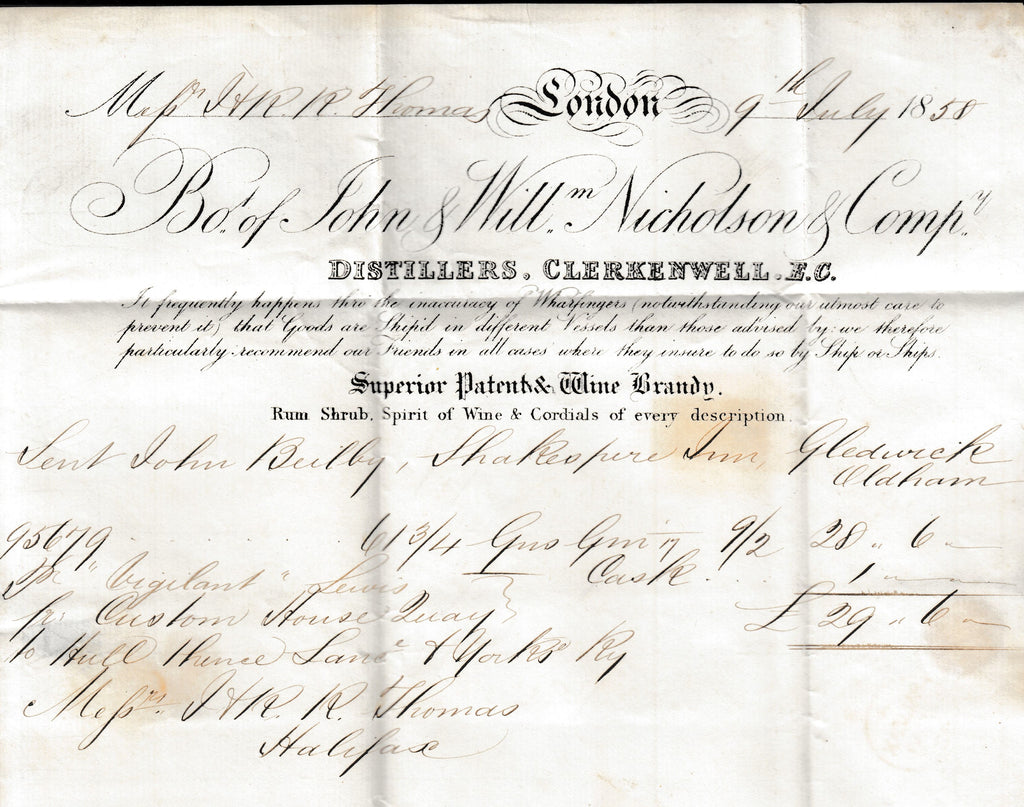 Messrs J & R. R. Thomas London 9th July 1858
Bot. of John & Willm. Nicholson & Compy.
DISTILLERS, CLERKENWELL. E.C.
It frequently happens thro the inaccuracy of Wharfingers (notwithstanding our utmost care to
prevent it) that Goods are Ship'd in different Vessels than those advised by: we therefore
particularly recommend our Friends in all cases where they insure to do so by Ship or Ships.
Superior Patent & Wine Brandy.
Rum Shrub, Spirit of Wine & Cordials of every description.
Sent John Beilby, Shakespere Inn, Gledwick
Oldham
95679 . . . . . 61 3/4 Gns Gin 17 9/2 28 " 6 "
Pr "Vigilant", Lewis Cask . . 1 " "
fr: Custom House Quay £ 29 " 6 "
to Hull thence Lanc. & Yorks Ry
Messrs. J & R. R. Thomas
Halifax